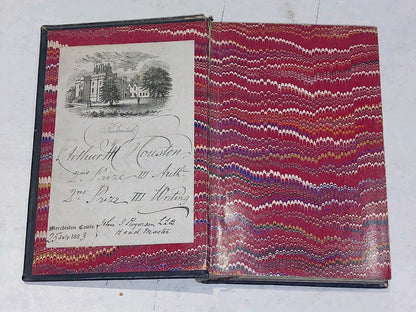 Presented
Arthur H Rouston
2nd Prize III Arith
2nd Prize III Writing
Merchiston Castle
25 July 1883
John J Rogerson LL.D.
Head Master